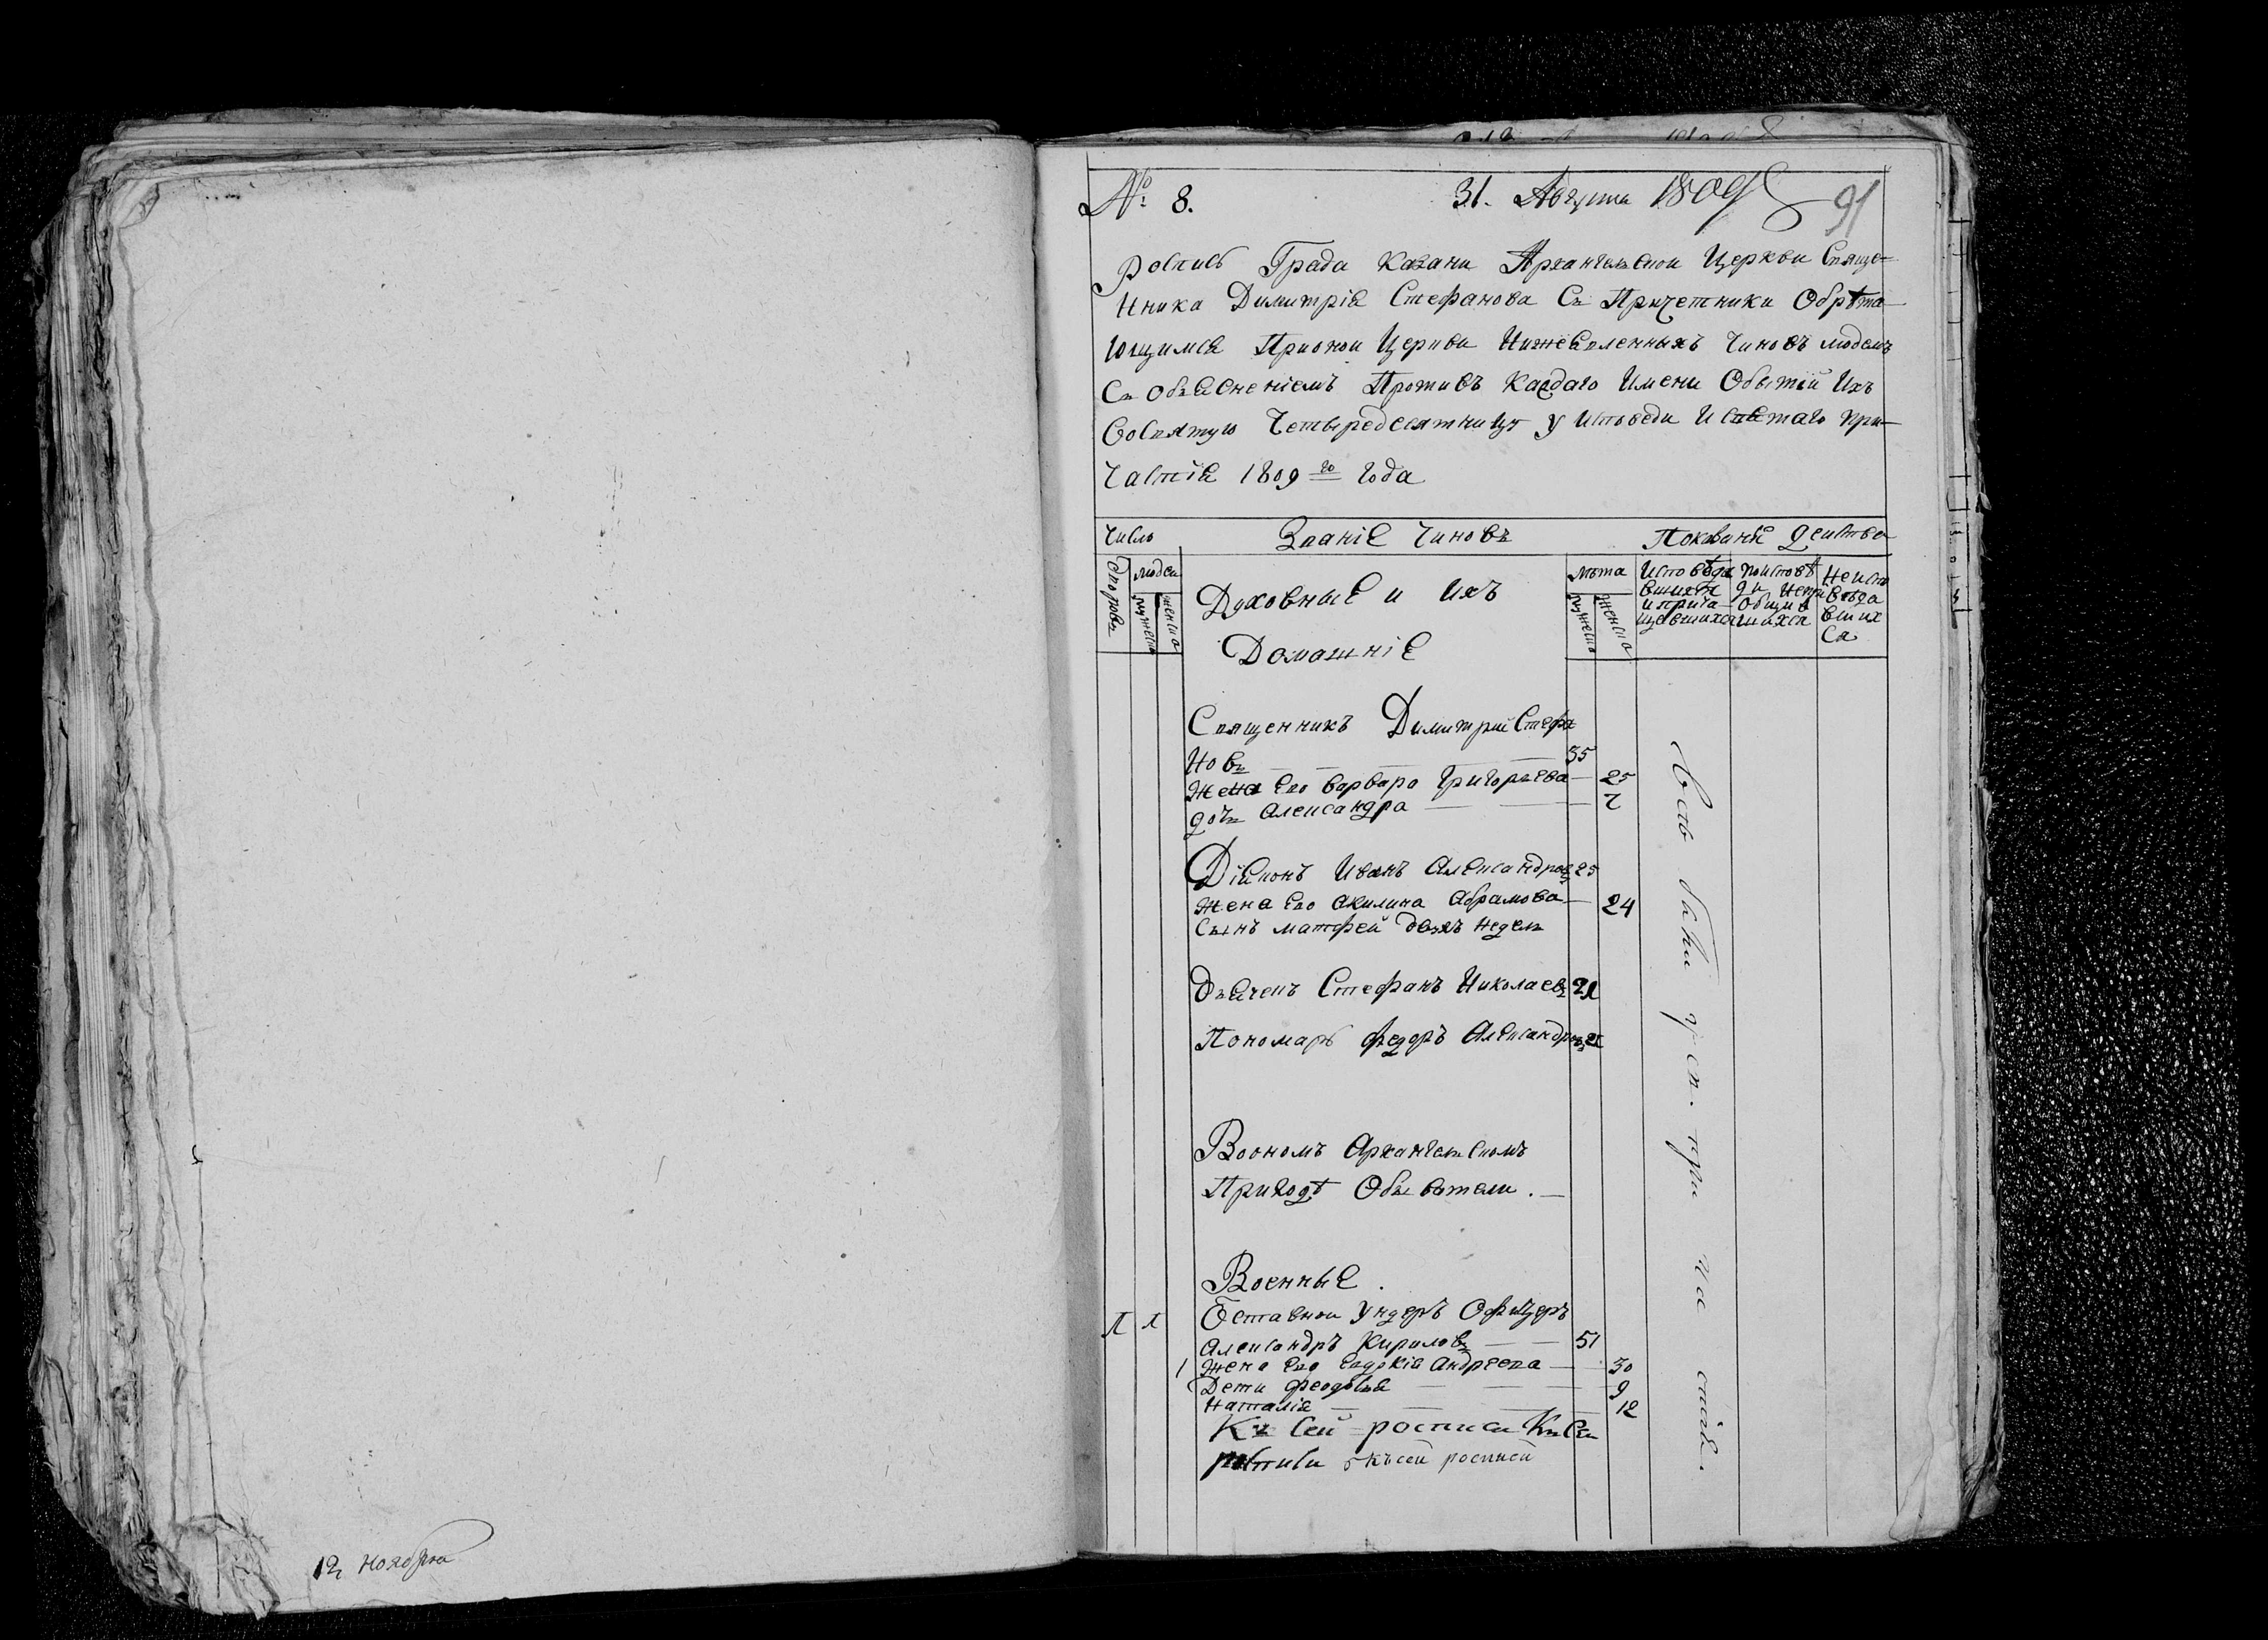 12 ноября
№ 8.
31. Августа 1809
91
роспись Града Казани Архангельской Церкви Свяще-
нника Димитрія Стефанова Съ Причетники Обрѣта-
ющимся Прионой Церкви Нижеявленныхъ Чиновъ людемъ
Съ Объясненіемъ Противъ Каждаго Имени Обытій Ихъ
Восвятую Четыредесятницу у Исповеди И святаго при-
частія 1809 го года
Число
Званіе Чиновъ
Показаніе действа
дворовъ
людей
мужеска
женска
Духовные и Ихъ
Домашніе
лѣта
мужеска
женска
Исповѣда
вшихся
и прича-
щавшихся
Неиспо
вѣда
вших
ся
Священникъ Димитрий Стефа
новъ 35
Жена Его варвара Григорьева 25
дочь Александра
Діяконъ Иванъ Александровъ 25
Жена Его Акилина Абрамова 24
Сынъ матфей двухъ недель
дьячекъ Стефанъ Николаевъ 21
Пономарь федоръ Александровъ
Воономъ Архангельскомъ
Приходѣ Обыватели.
Военные.
1 1 Отставной Ундеръ Офицеръ
Александръ Кириловъ 51
1 Жена Его Евдокія Андреева 30
Дети феодосья 9
Наталія 12
Къ Сей росписи
росписи къ сей росписи